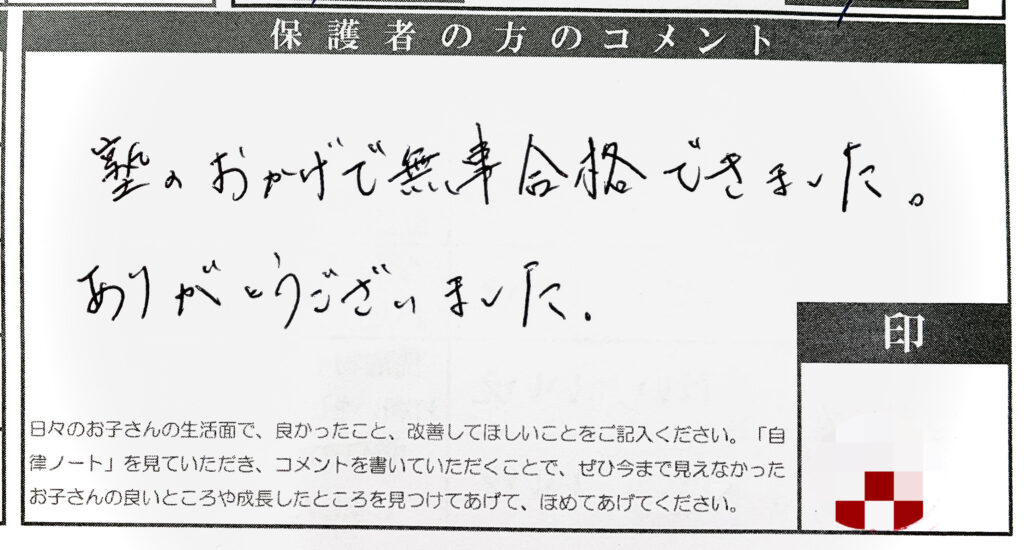 保護者の方のコメント
塾のおかげで無事合格できました。
ありがとうございました.
印
日々のお子さんの生活面で、良かったこと、改善してほしいことをご記入ください。「自
律ノート」を見ていただき、コメントを書いていただくことで、ぜひ今まで見えなかった
お子さんの良いところや成長したところを見つけてあげて、ほめてあげてください。